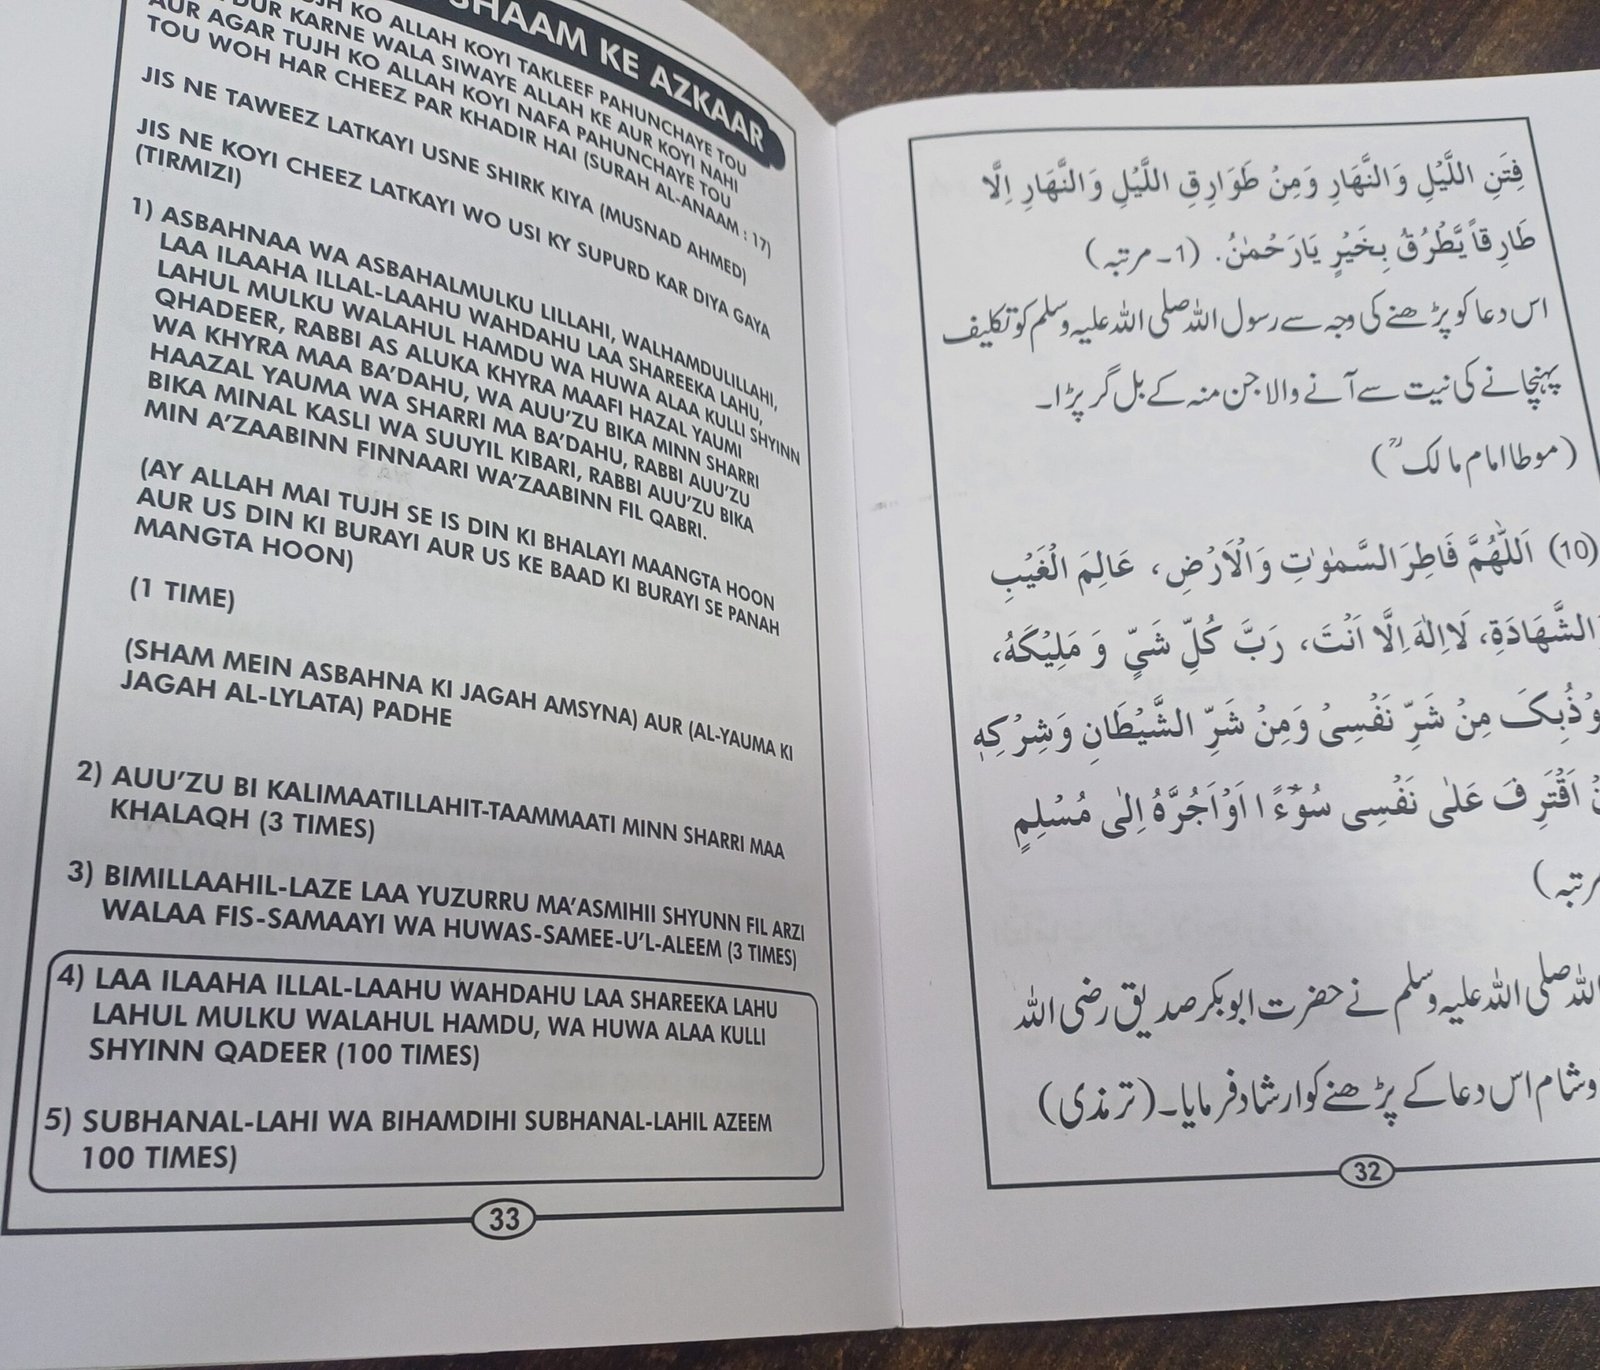 SHAAM KE AZKAAR
KO ALLAH KOYI TAKLEEF PAHUNCHAYE TOU
DUR KARNE WALA SIWAYE ALLAH KE AUR KOYI NAHI
AUR AGAR TUJH KO ALLAH KOYI NAFA PAHUNCHAYE TOU
TOU WOH HAR CHEEZ PAR KHADIR HAI (SURAH AL-ANAAM : 17)
JIS NE TAWEEZ LATKAYI USNE SHIRK KIYA (MUSNAD AHMED)
JIS NE KOYI CHEEZ LATKAYI WO USI KY SUPURD KAR DIYA GAYA
(TIRMIZI)
1) ASBAHNAA WA ASBAHALMULKU LILLAHI, WALHAMDULILLAHI,
LAA ILAAHA ILLAL-LAAHU WAHDAHU LAA SHAREEKA LAHU,
LAHUL MULKU WALAHUL HAMDU WA HUWA ALAA KULLI SHYINN
QHADEER, RABBI AS ALUKA KHYRA MAAFI HAZAL YAUMI
WA KHYRA MAA BA'DAHU, WA AUU'ZU BIKA MINN SHARRI
HAAZAL YAUMA WA SHARRI MA BA'DAHU, RABBI AUU'ZU
BIKA MINAL KASLI WA SUUYIL KIBARI, RABBI AUU'ZU BIKA
MIN A'ZAABINN FINNAARI WA'ZAABINN FIL QABRI.
(AY ALLAH MAI TUJH SE IS DIN KI BHALAYI MAANGTA HOON
AUR US DIN KI BURAYI AUR US KE BAAD KI BURAYI SE PANAH
MANGTA HOON)
(1 TIME)
(SHAM MEIN ASBAHNA KI JAGAH AMSYNA) AUR (AL-YAUMA KI
JAGAH AL-LYLATA) PADHE
2) AUU'ZU BI KALIMAATILLAHIT-TAAMMAATI MINN SHARRI MAA
KHALAQH (3 TIMES)
3) BIMILLAAHIL-LAZE LAA YUZURRU MA'ASMIHII SHYUNN FIL ARZI
WALAA FIS-SAMAAYI WA HUWAS-SAMEE-U'L-ALEEM (3 TIMES)
4) LAA ILAAHA ILLAL-LAAHU WAHDAHU LAA SHAREEKA LAHU
LAHUL MULKU WALAHUL HAMDU, WA HUWA ALAA KULLI
SHYINN QADEER (100 TIMES)
5) SUBHANAL-LAHI WA BIHAMDIHI SUBHANAL-LAHIL AZEEM
100 TIMES)
33
فِتَنِ اللَّيْلِ وَالنَّهَارِ وَمِنْ طَوَارِقِ اللَّيْلِ وَالنَّهَارِ اِلَّا
طَارِقاً يَّطْرُقُ بِخَيْرٍ يَارَحْمٰنُ. (1۔مرتبہ)
اس دعا کو پڑھنے کی وجہ سے رسول اللہ صلی اللہ علیہ وسلم کو تکلیف
پہنچانے کی نیت سے آنے والا جن منہ کے بل گر پڑا۔
(موطا امام مالکؒ)
(10) اَللّٰهُمَّ فَاطِرَ السَّمٰوٰتِ وَالْاَرْضِ، عَالِمَ الْغَيْبِ
الشَّهَادَةِ، لَا اِلٰهَ اِلَّا اَنْتَ، رَبَّ كُلِّ شَيٍّ وَ مَلِيْكَهُ،
وْذُبِكَ مِنْ شَرِّ نَفْسِىْ وَمِنْ شَرِّ الشَّيْطَانِ وَشِرْكِهٖ
اَقْتَرِفَ عَلٰى نَفْسِى سُوْٓءًا اَوْاَجُرَّهُ اِلٰى مُسْلِمٍ
مرتبہ)
اللہ صلی اللہ علیہ وسلم نے حضرت ابوبکر صدیق رضی اللہ
وشام اس دعا کے پڑھنے کو ارشاد فرمایا۔ (ترمذی)
32